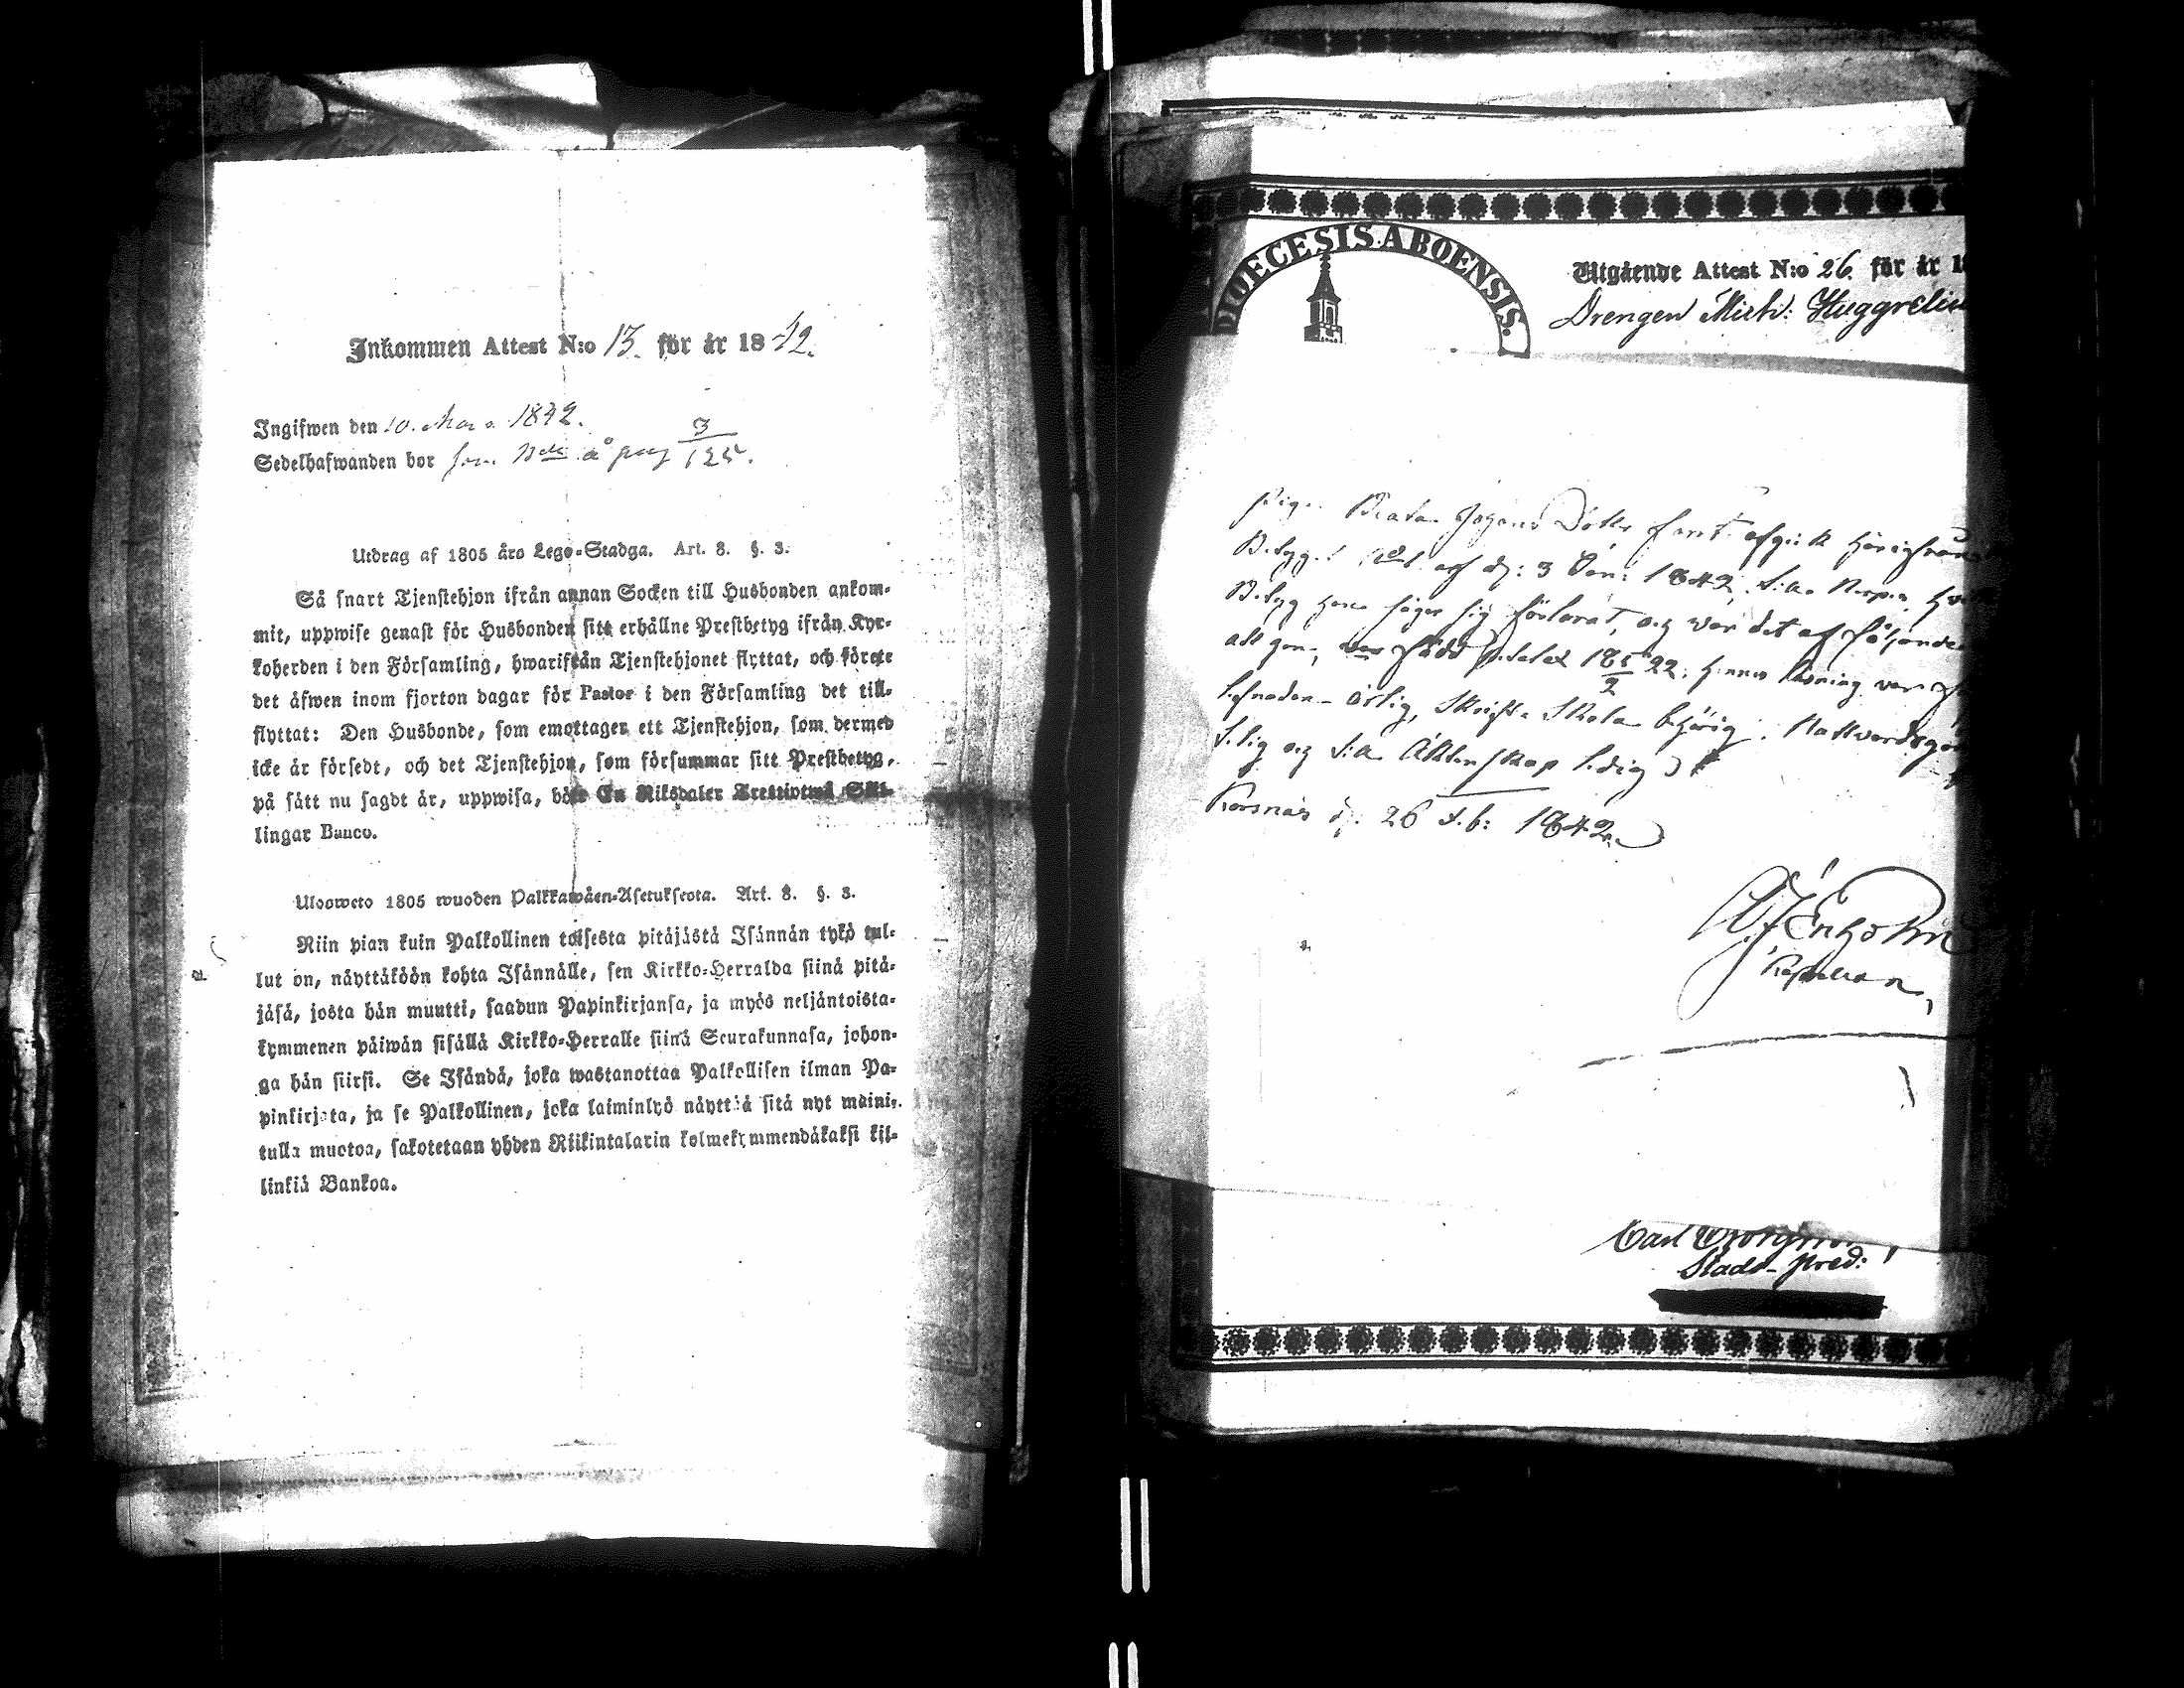 Inkommen Attest N:o 13. för år 1842.
Ingifwen den 10. Mars 1842.
Sedelhafwanden bor på pag 3/125.
Utdrag af 1805 års Lego-Stadga. Art. 8. §. 3.
Så snart Tjenstehjon ifrån annan Socken till Husbonden ankom-
mit, uppwise genast för Husbonden sitt erhållne Prestbetyg ifrån Kyr-
koherden i den Församling, hwarifrån Tjenstehjonet flyttat, och förete
det äfwen inom fjorton dagar för Pastor i den Församling det till-
flyttat: Den Husbonde, som emottager ett Tjenstehjon, som dermed
icke är försedt, och det Tjenstehjon, som försummar sitt Prestbetyg,
på sätt nu sagdt är, uppwisa, böte En Riksdaler Trettiotwå Skil-
lingar Banco.
Ulosweto 1805 wuoden Palkkawäen-Asetuksesta. Art. 8. §. 3.
Niin pian kuin Palkollinen toisesta pitäjästä Isännän tykö tul-
lut on, näyttäköön kohta Isännälle, sen Kirkko-Herralda siinä pitä-
jäsä, josta hän muutti, saadun Papinkirjansa, ja myös neljäntoista-
kymmenen päiwän sisällä Kirkko-Herralle siinä Seurakunnasa, johon-
ga hän siirsi. Se Isändä, joka wastanottaa Palkollisen ilman Pa-
pinkirjata, ja se Palkollinen, joka laiminlyö näyttää sitä nyt maini-
tulla muotoa, sakotetaan yhden Riikintalarin kolmekymmendäkaksi kil-
linkiä Bankoa.
DIOECESIS ABOENSIS.
Utgående Attest N:o 26. för år 1
Drengen Mich: Huggrelin
Pigan Beata Johans Dotter
Betyget af d: 3 Jan: 1842,
Betyg hon säger sig förlorat, och var det af följande
att hon, var född 18 5/2 22; hennes läsning var
lefnaden ärlig, Skrift Skola behörig. Nattvardsgång
och till Äktenskap ledig
Korsnäs d. 26 Feb: 1842.
Engholm
Kapellan,
Carl
Stads-pred: